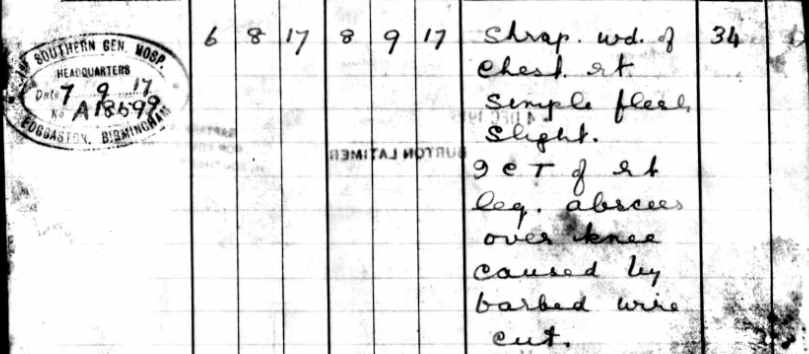 SOUTHERN GEN. HOSP.
HEADQUARTERS
Date 7 9 17
No A18599
EDGBASTON, BIRMINGHAM
6 8 17 8 9 17 Shrap. wd. of 34
Chest. rt.
Simple flesh
Slight.
BURTON LATIMER
I C T of rt
leg. abscess
over knee
caused by
barbed wire
cut.